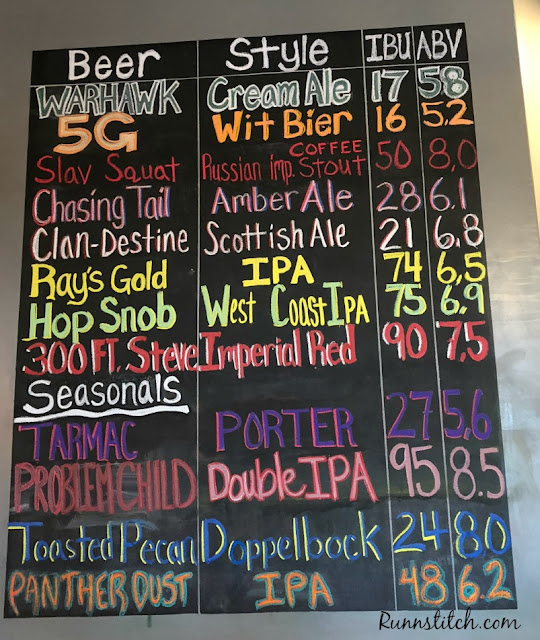 Beer Style IBU ABV
WARHAWK Cream Ale 17 58
5G Wit Bier 16 5.2
Slav Squat Russian Imp. COFFEE Stout 50 8,0
Chasing Tail Amber Ale 28 6.1
Clan-Destine Scottish Ale 21 6.8
Ray's Gold IPA 74 6,5
Hop Snob West Coast IPA 75 6.9
300 FT. Steve Imperial Red 90 7,5
Seasonals
TARMAC PORTER 27 5,6
PROBLEM CHILD Double IPA 95 8.5
Toasted Pecan Doppelbock 24 8.0
PANTHER DUST IPA 48 6.2
Runnstitch.com